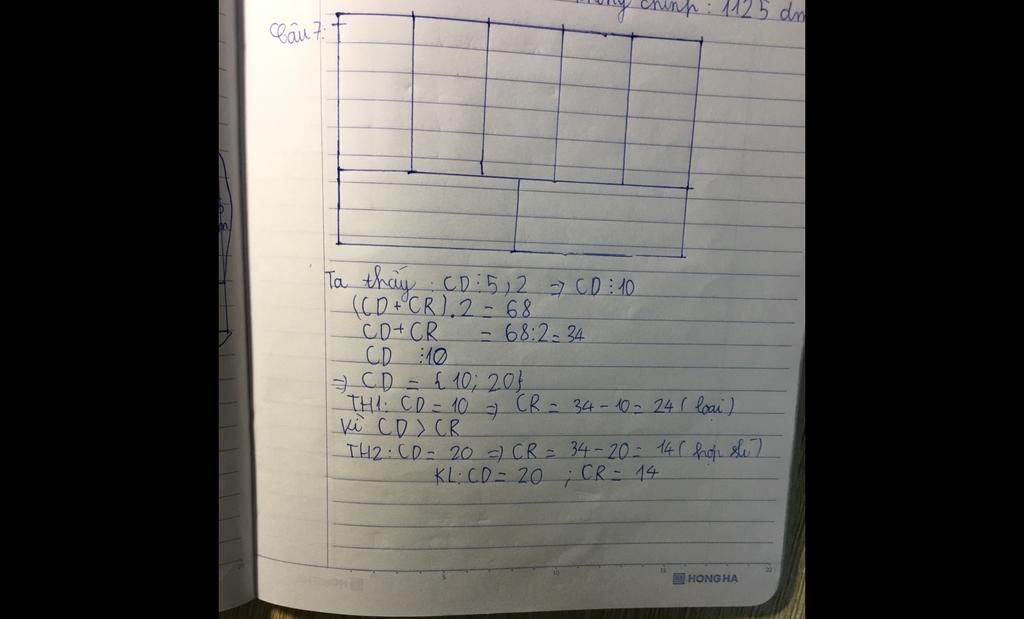 chính : 1125 dm
Câu 7:
Ta thấy : CD ⋮ 5 ; 2 => CD ⋮ 10
(CD + CR) . 2 = 68
CD + CR = 68 : 2 = 34
CD ⋮ 10
=> CD = { 10 ; 20 }
TH1 : CD = 10 => CR = 34 - 10 = 24 ( loại )
Vì CD > CR
TH2 : CD = 20 => CR = 34 - 20 = 14 ( hợp lí )
KL : CD = 20 ; CR = 14
HONG HA